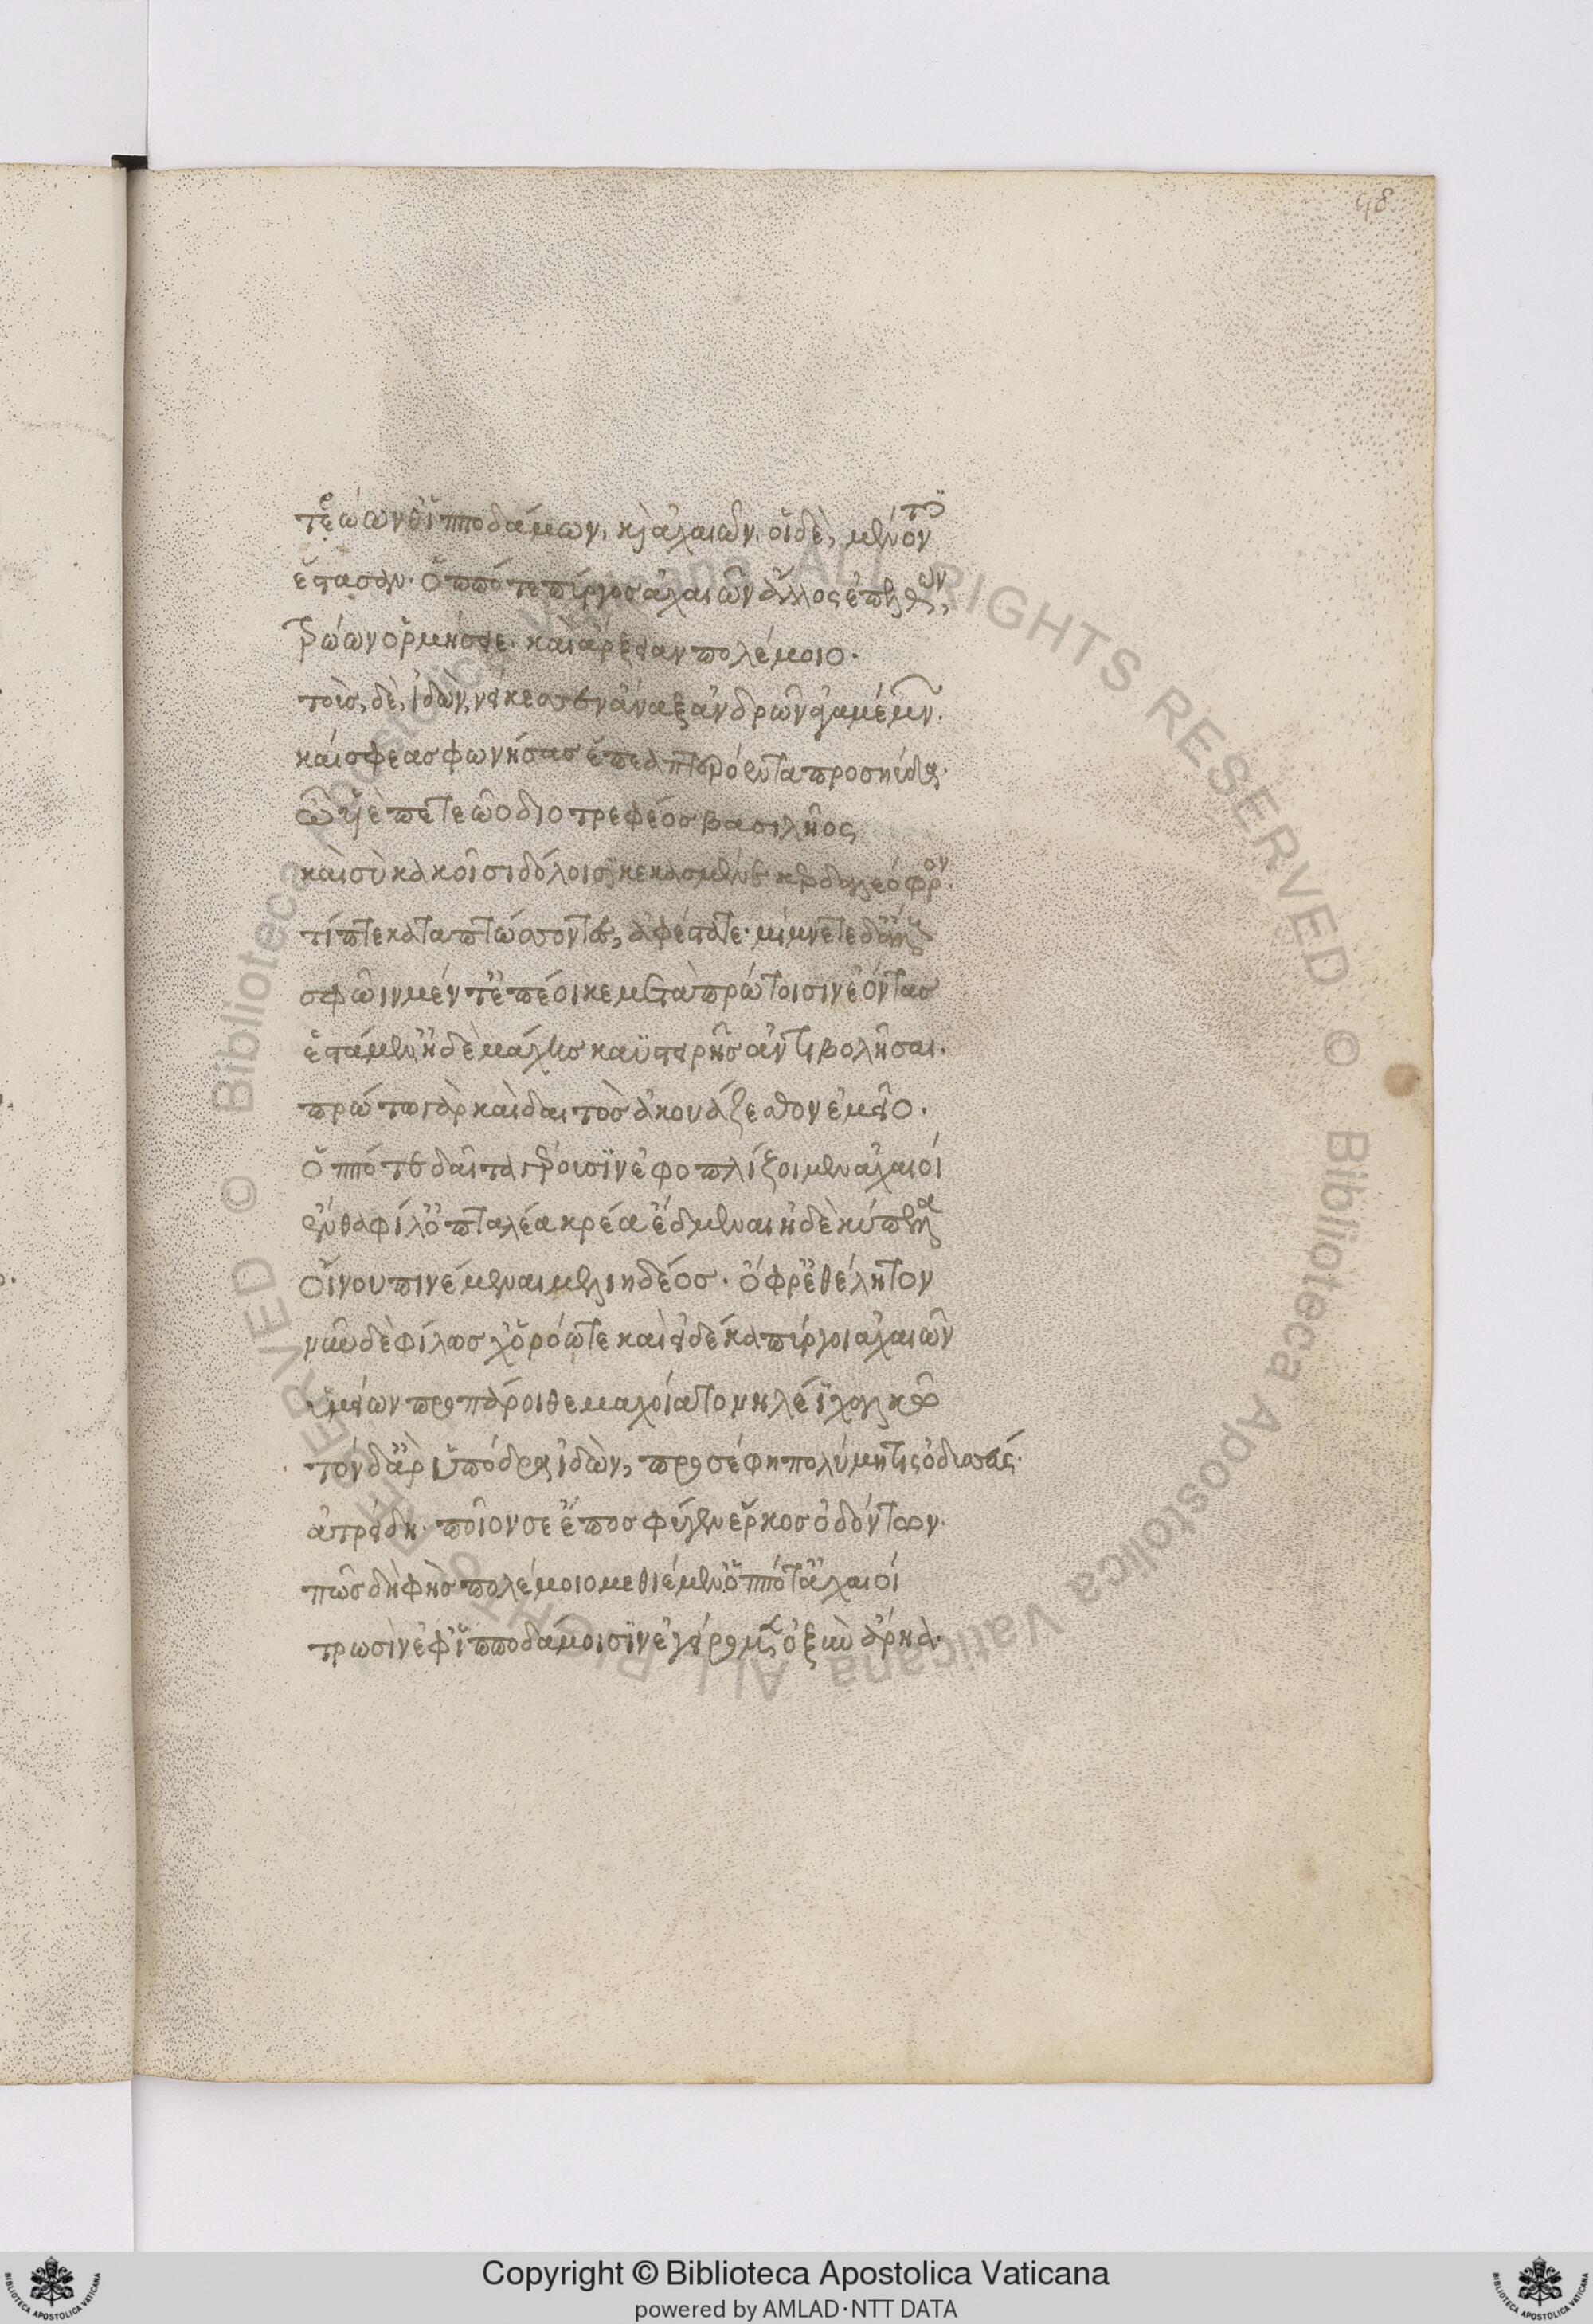 48
τρώων θ' ἱπποδάμων, καὶ ἀχαιῶν. οἱ δὲ, μένοντες
ἔστασαν. ὁππότε πύργος ἀχαιῶν ἄλλος ἐπελθὼν,
τρώων ὁρμήσειε. καὶ ἄρξειαν πολέμοιο.
τοὺς, δὲ, ἰδὼν, νείκεσσεν ἄναξ ἀνδρῶν ἀγαμέμνων.
καί σφεας φωνήσας ἔπεα πτερόεντα προσηύδα.
ὦ υἱὲ πετεῶο διοτρεφέος βασιλῆος
καὶ σὺ κακοῖσι δόλοισι κεκασμένε κερδαλεόφρον.
τίπτε καταπτώσσοντες, ἀφέστατε. μίμνετε δ' ἄλλους
σφῶιν μέν τ' ἐπέοικε μετὰ πρώτοισιν ἐόντας
ἑστάμεν ἠδὲ μάχης καυστειρῆς ἀντιβολῆσαι.
πρώτω γὰρ καὶ δαιτὸς ἀκουάζεσθον ἐμεῖο.
ὁππότε δαῖτα γέρουσιν ἐφοπλίζοιμεν ἀχαιοί
ἔνθα φίλ' ὀπταλέα κρέα ἔδμεναι ἠδὲ κύπελλα
οἴνου πινέμεναι μελιηδέος. ὄφρ' ἐθέλητον
νῦν δὲ φίλως χ' ὁρόωτε καὶ εἰ δέκα πύργοι ἀχαιῶν
ὑμείων προπάροιθε μαχοίατο νηλέϊ χαλκῶ
τὸν δ' ἄρ' ὑπόδρα ἰδὼν, προσέφη πολύμητις ὀδυσσεύς.
ἀτρείδη. ποῖόν σε ἔπος φύγεν ἕρκος ὀδόντων.
πῶς δὴ φὴς πολέμοιο μεθιέμεν ὁππότ' ἀχαιοί
τρωσὶν ἐφ' ἱπποδάμοισιν ἐγείρομεν ὀξὺν ἄρηα.
Copyright © Biblioteca Apostolica Vaticana
powered by AMLAD·NTT DATA